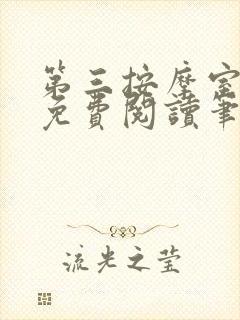 第三按摩室
免費閱讀筆
流光之莹